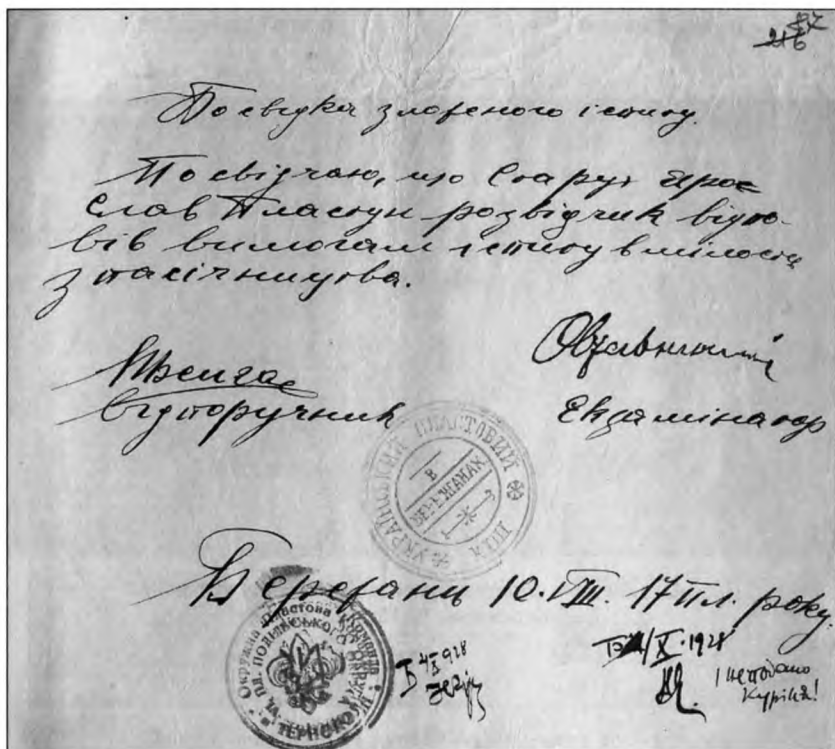 87
216
Посвідка зложеного іспиту.
Посвідчаю, що Старух Яро
слав Пластун розвідчик відпо-
вів вимогам іспиту вмілости
з пасічництва.
відпоручник
Екзамінатор
УКРАЇНСЬКИЙ ПЛАСТОВИЙ
В
БЕРЕЖАНАХ
Бережани 10.VIII. 17 пл. року.
Окружна Пластова Команда
ПОДІЛЬСЬКОГО
в ТЕРНОПОЛІ
/X.1928
і не подано
куріня!